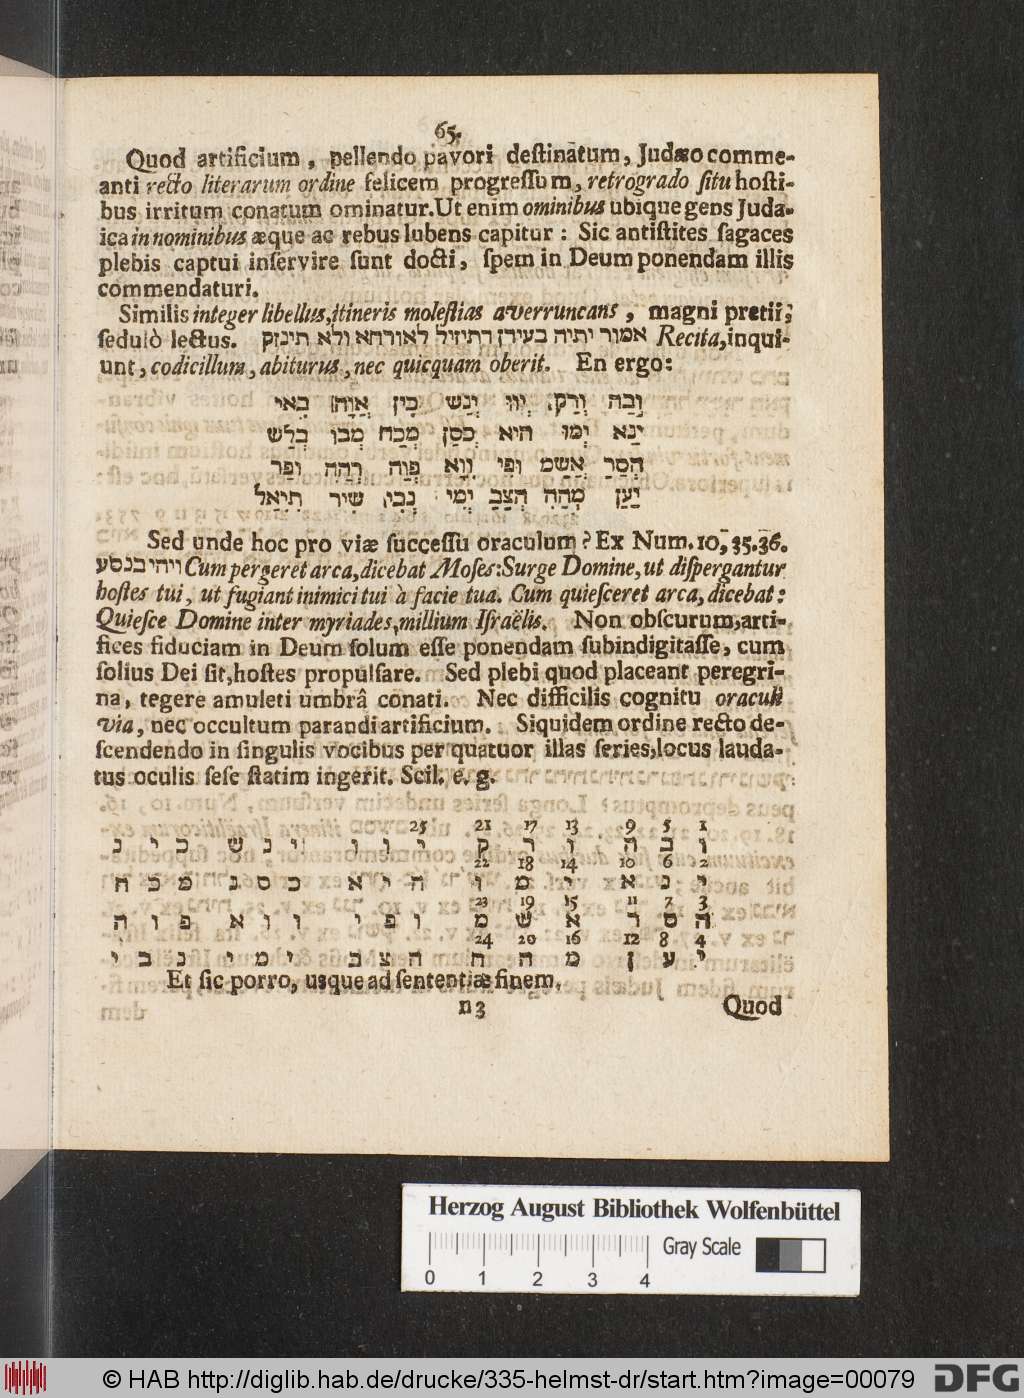 65.
Quod artificium, pellendo pavori destinatum, Judæo comme-
anti recto literarum ordine felicem progressum, retrogrado situ hosti-
bus irritum conatum ominatur. Ut enim ominibus ubique gens Juda-
ica in nominibus æque ac rebus lubens capitur: Sic antistites sagaces
plebis captui inservire sunt docti, spem in Deum ponendam illis
commendaturi.
Similis integer libellus, itineris molestias averruncans, magni pretii;
sedulò lectus. אמור יתיה בעידן דתיזיל לאורחא ולא תינזק Recita, inqui-
unt, codicillum, abiturus, nec quicquam oberit. En ergo:
וָבַה וְרַק יְוִוּ יְנַשׁ כִּין אֲוָהוּ בְאי
יַנֵא יְמוּ היא כְסַן מְכַח מְבוּ בְלש
הְסַר אֲשַמ וּפִי וְוָא פְוַה רְהַה וּפַר
יַעַן מְהַה הְצַב יְמִי נְבִי שִיר תִיאַל
Sed unde hoc pro viæ successu oraculum? Ex Num. 10, 35. 36.
ויהי בנסע Cum pergeret arca, dicebat Moses: Surge Domine, ut dispergantur
hostes tui, ut fugiant inimici tui à facie tua. Cum quiesceret arca, dicebat:
Quiesce Domine inter myriades, millium Israëlis. Non obscurum, arti-
fices fiduciam in Deum solum esse ponendam subindigitasse, cum
solius Dei sit, hostes propulsare. Sed plebi quod placeant peregri-
na, tegere amuleti umbrâ conati. Nec difficilis cognitu oraculi
via, nec occultum parandi artificium. Siquidem ordine recto de-
scendendo in singulis vocibus per quatuor illas series, locus lauda-
tus oculis sese statim ingerit. Scil. e. g.
25 21 17 13 9 5 1
ו ב ה ו ר ק י ו ו י נ ש כ י נ
22 18 14 10 6 2
י נ א י מ ו ה י א כ ס נ מ כ ח
23 19 15 11 7 3
ה ס ר א ש מ ו פ י ו ו א פ ו ה
24 20 16 12 8 4
י ע ן מ ה ח ה צ ב י מ י נ ב י
Et sic porro, usque ad sententiæ finem.
n 3 Quod
Herzog August Bibliothek Wolfenbüttel
Gray Scale
0 1 2 3 4
© HAB http://diglib.hab.de/drucke/335-helmst-dr/start.htm?image=00079
DFG